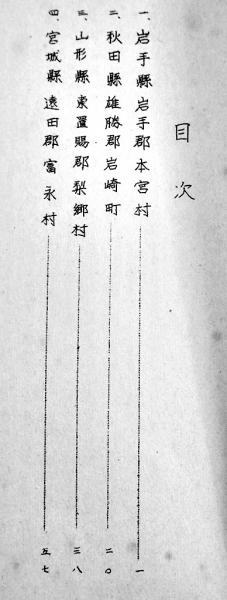 目次
一、岩手縣岩手郡本宮村 一
二、秋田縣雄勝郡岩崎町 二〇
三、山形縣東置賜郡梨鄕村 三八
四、宮城縣遠田郡富永村 五七